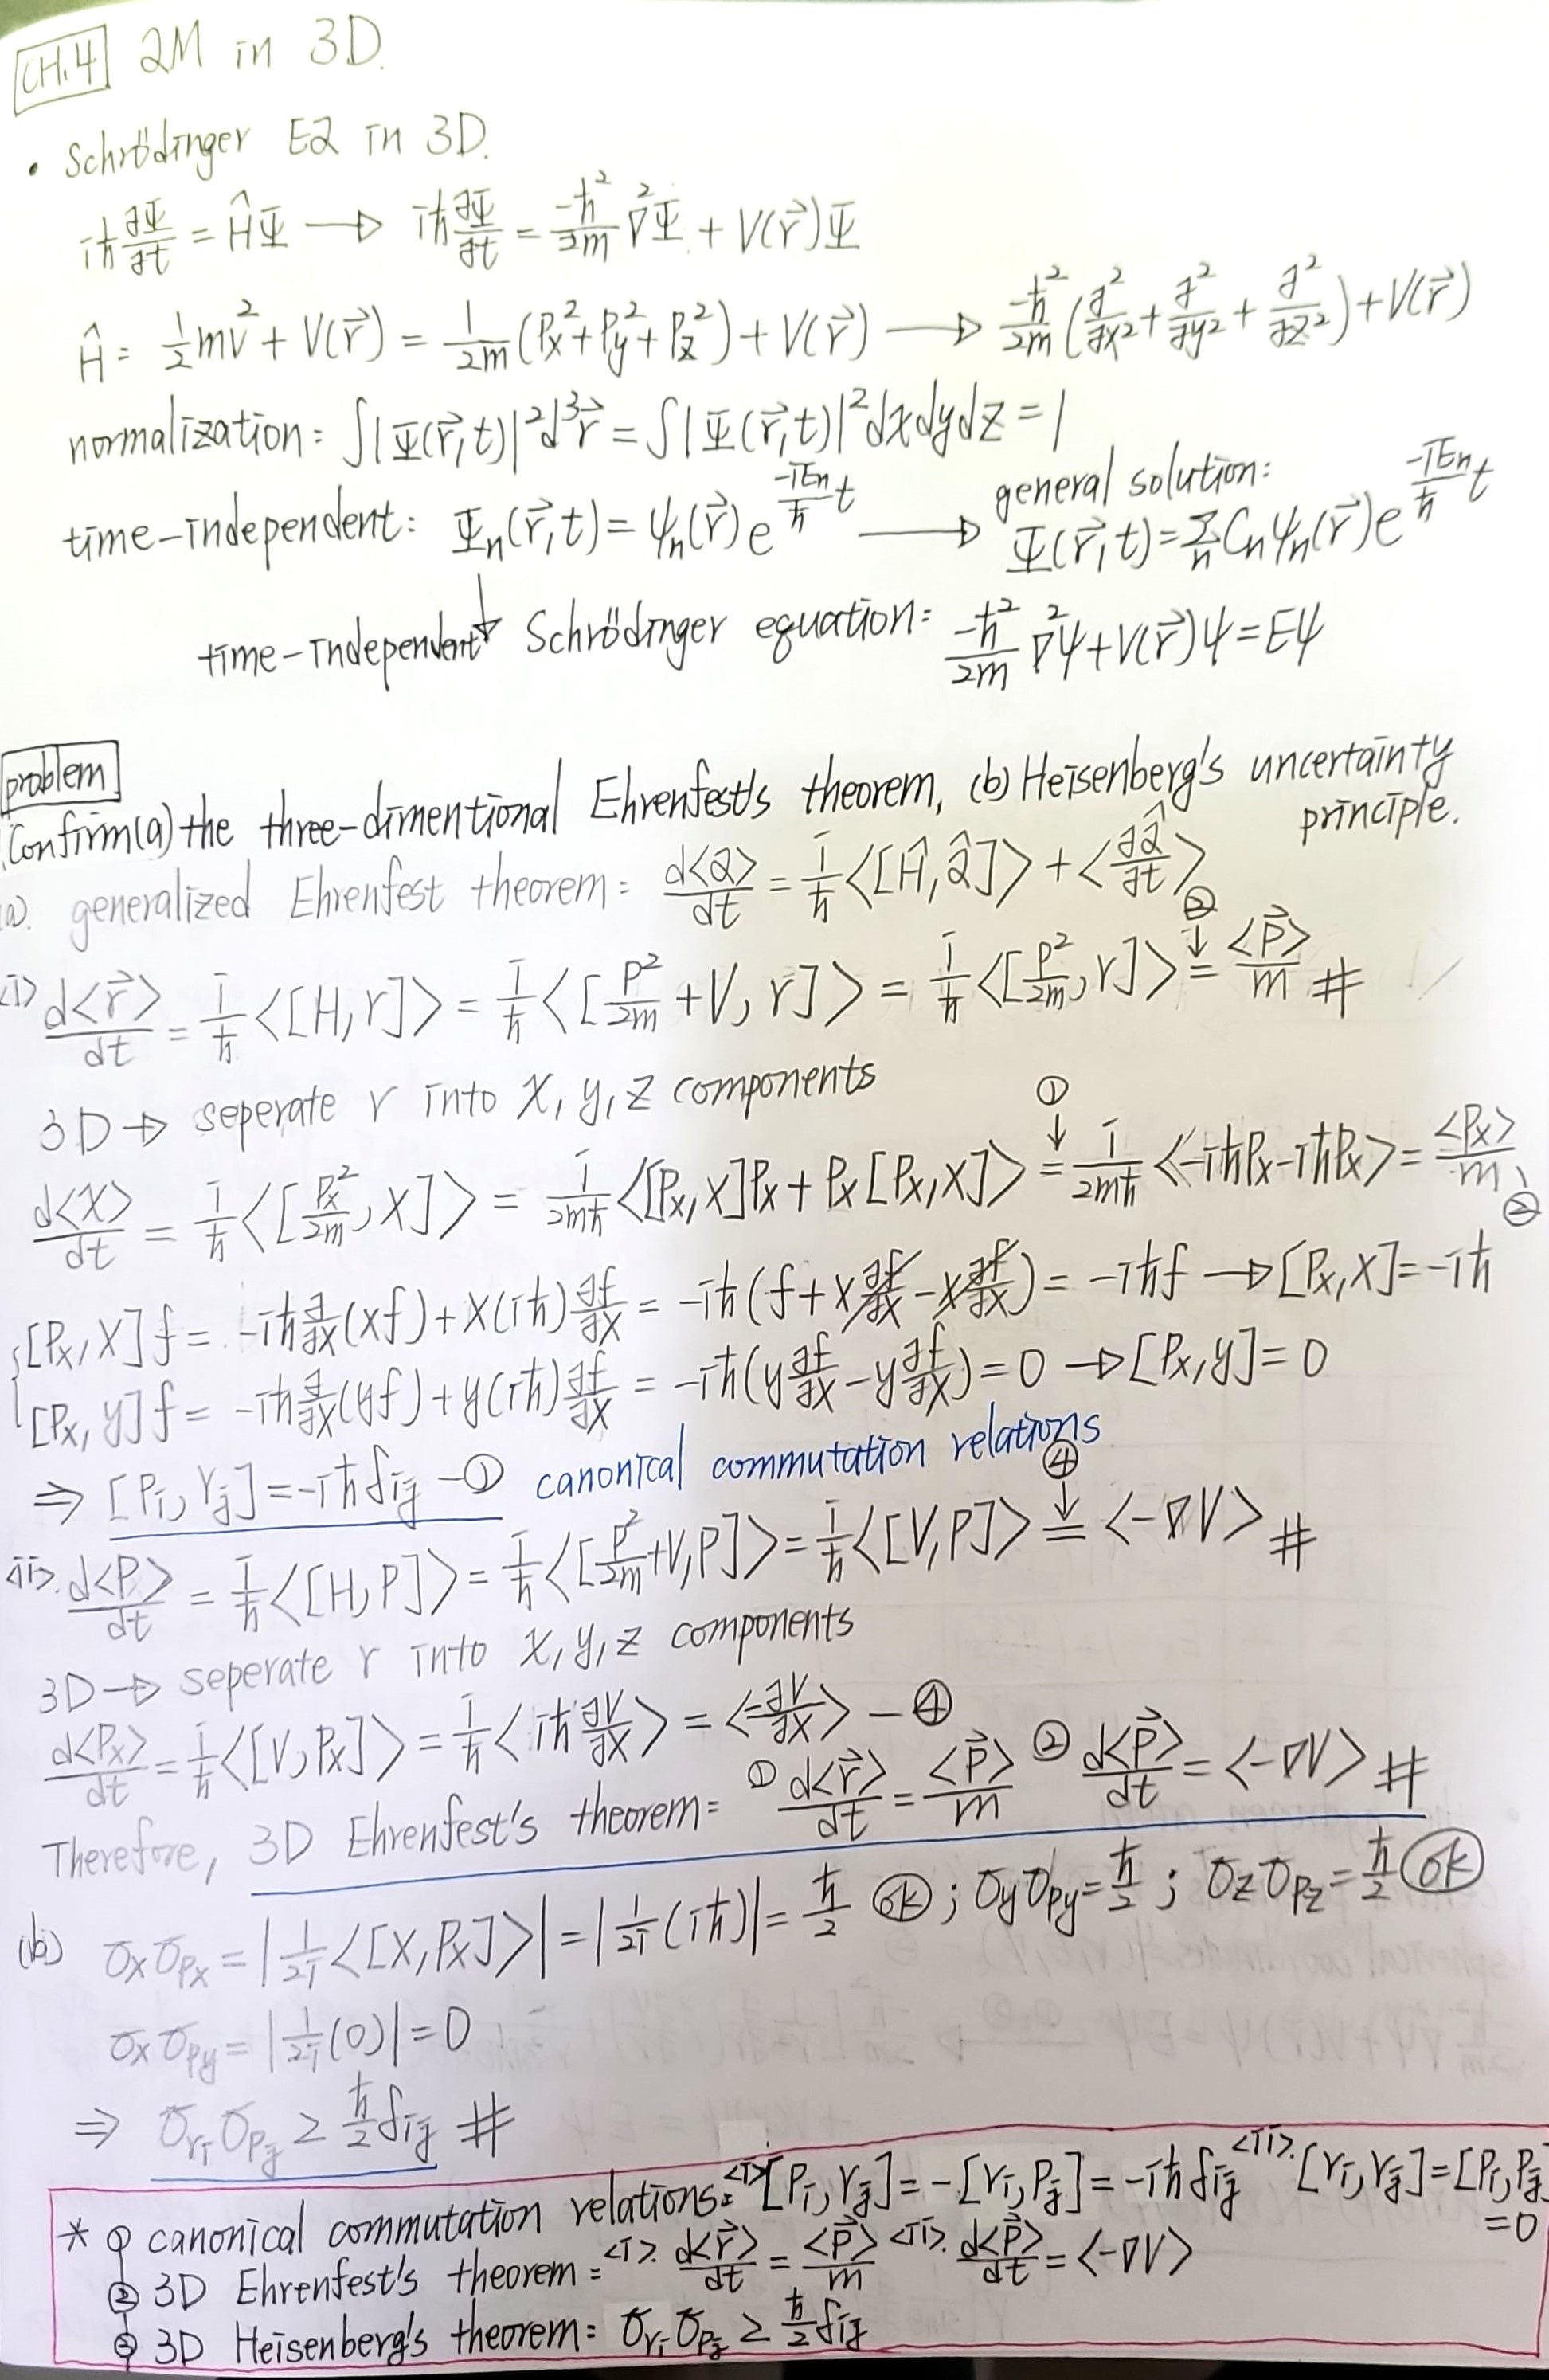 CH.4 QM in 3D.
• Schrödinger EQ in 3D.
iℏ ∂Ψ/∂t = ĤΨ → iℏ ∂Ψ/∂t = -ℏ²/2m ∇²Ψ + V(r⃗)Ψ
Ĥ = 1/2 mv² + V(r⃗) = 1/2m (Px² + Py² + Pz²) + V(r⃗) → -ℏ²/2m (∂²/∂x² + ∂²/∂y² + ∂²/∂z²) + V(r⃗)
normalization: ∫|Ψ(r⃗,t)|² d³r⃗ = ∫|Ψ(r⃗,t)|² dxdydz = 1
time-independent: Ψn(r⃗,t) = ψn(r⃗) e^(-iEn/ℏ t) → general solution: Ψ(r⃗,t) = Σn Cn ψn(r⃗) e^(-iEn/ℏ t)
↓
time-independent Schrödinger equation: -ℏ²/2m ∇²ψ + V(r⃗)ψ = Eψ
problem
Confirm (a) the three-dimentional Ehrenfest's theorem, (b) Heisenberg's uncertainty principle.
(a). generalized Ehrenfest theorem: d<Q>/dt = i/ℏ <[Ĥ, Q̂]> + <∂Q̂/∂t>
<i> d<r⃗>/dt = i/ℏ <[H, r]> = i/ℏ <[P²/2m + V, r]> = i/ℏ <[P²/2m, r]> =(②↓) <P⃗>/m #
3D → seperate r into x, y, z components
d<x>/dt = i/ℏ <[Px²/2m, x]> = i/2mℏ <[Px, x]Px + Px[Px, x]> =(①↓) i/2mℏ <-iℏPx - iℏPx> = <Px>/m, ②
[Px, x]f = -iℏ ∂/∂x (xf) + x(iℏ) ∂f/∂x = -iℏ (f + x ∂f/∂x - x ∂f/∂x) = -iℏf → [Px, x] = -iℏ
[Px, y]f = -iℏ ∂/∂x (yf) + y(iℏ) ∂f/∂x = -iℏ (y ∂f/∂x - y ∂f/∂x) = 0 → [Px, y] = 0
⇒ [Pi, rj] = -iℏ δij - ① canonical commutation relations
<ii>. d<P>/dt = i/ℏ <[H, P]> = i/ℏ <[P²/2m + V, P]> = i/ℏ <[V, P]> =(④↓) <-∇V> #
3D → seperate r into x, y, z components
d<Px>/dt = i/ℏ <[V, Px]> = i/ℏ <iℏ ∂V/∂x> = <-∂V/∂x> - ④
Therefore, 3D Ehrenfest's theorem: ① d<r⃗>/dt = <P⃗>/m ② d<P⃗>/dt = <-∇V> #
(b) σx σPx = |1/2i <[x, Px]>| = |1/2i (iℏ)| = ℏ/2 ok ; σy σPy = ℏ/2 ; σz σPz = ℏ/2 ok
σx σPy = |1/2i (0)| = 0
⇒ σri σPj ≥ ℏ/2 δij #
* ① canonical commutation relations: <i> [Pi, rj] = -[ri, Pj] = -iℏ δij <ii>. [ri, rj] = [Pi, Pj] = 0
② 3D Ehrenfest's theorem: <i>. d<r⃗>/dt = <P⃗>/m <ii>. d<P⃗>/dt = <-∇V>
③ 3D Heisenberg's theorem: σri σPj ≥ ℏ/2 δij